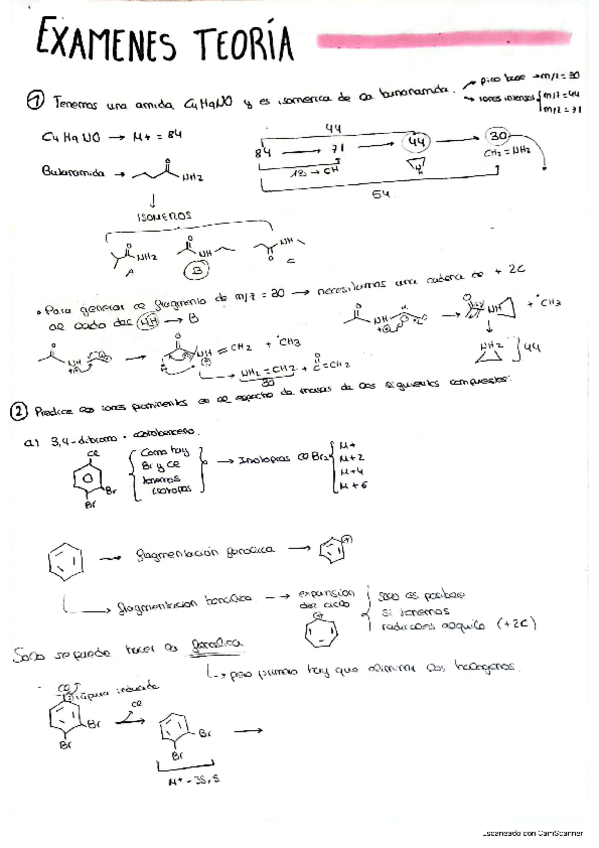 EXAMENES TEORÍA
① Tenemos una amida, C4H9NO y es isomerica de la butanamida.
pico base → m/z = 30
iones intensos
m/z = 44
m/z = 71
C4H9NO → M+ = 84
44
84 → 71 → 44 → 30
13 → CH
CH2=NH2
54
Butanamida →
NH2
ISOMEROS
NH2
NH
NH
A
B
C
• Para generar el fragmento de m/z = 30 → necesitamos una cadena de + 2C
al lado del NH → B
NH
NH
+ ·CH3
NH
NH=CH2 + ·CH3
NH2
44
NH2=CH2 + C=CH2
30
② Predice los iones prominentes en el espectro de masas de los siguientes compuestos:
a) 3,4-dibromo-clorobenceno.
Cl
Br
Br
Como hay
Br y Cl
tenemos
isotopos
→ Isotopos Cl Br2
M+
M+2
M+4
M+6
→ fragmentación fenolica →
→ fragmentacion bencilica → expansion
del ciclo
solo es posible
si tenemos
radicales alquilo (+2C)
Solo se puede hacer la fenolica
↳ pero primero hay que eliminar los halogenos.
Cl
ruptura inducida
Cl
Br
Br
Br
Br
M+ - 35,5
Escaneado con CamScanner